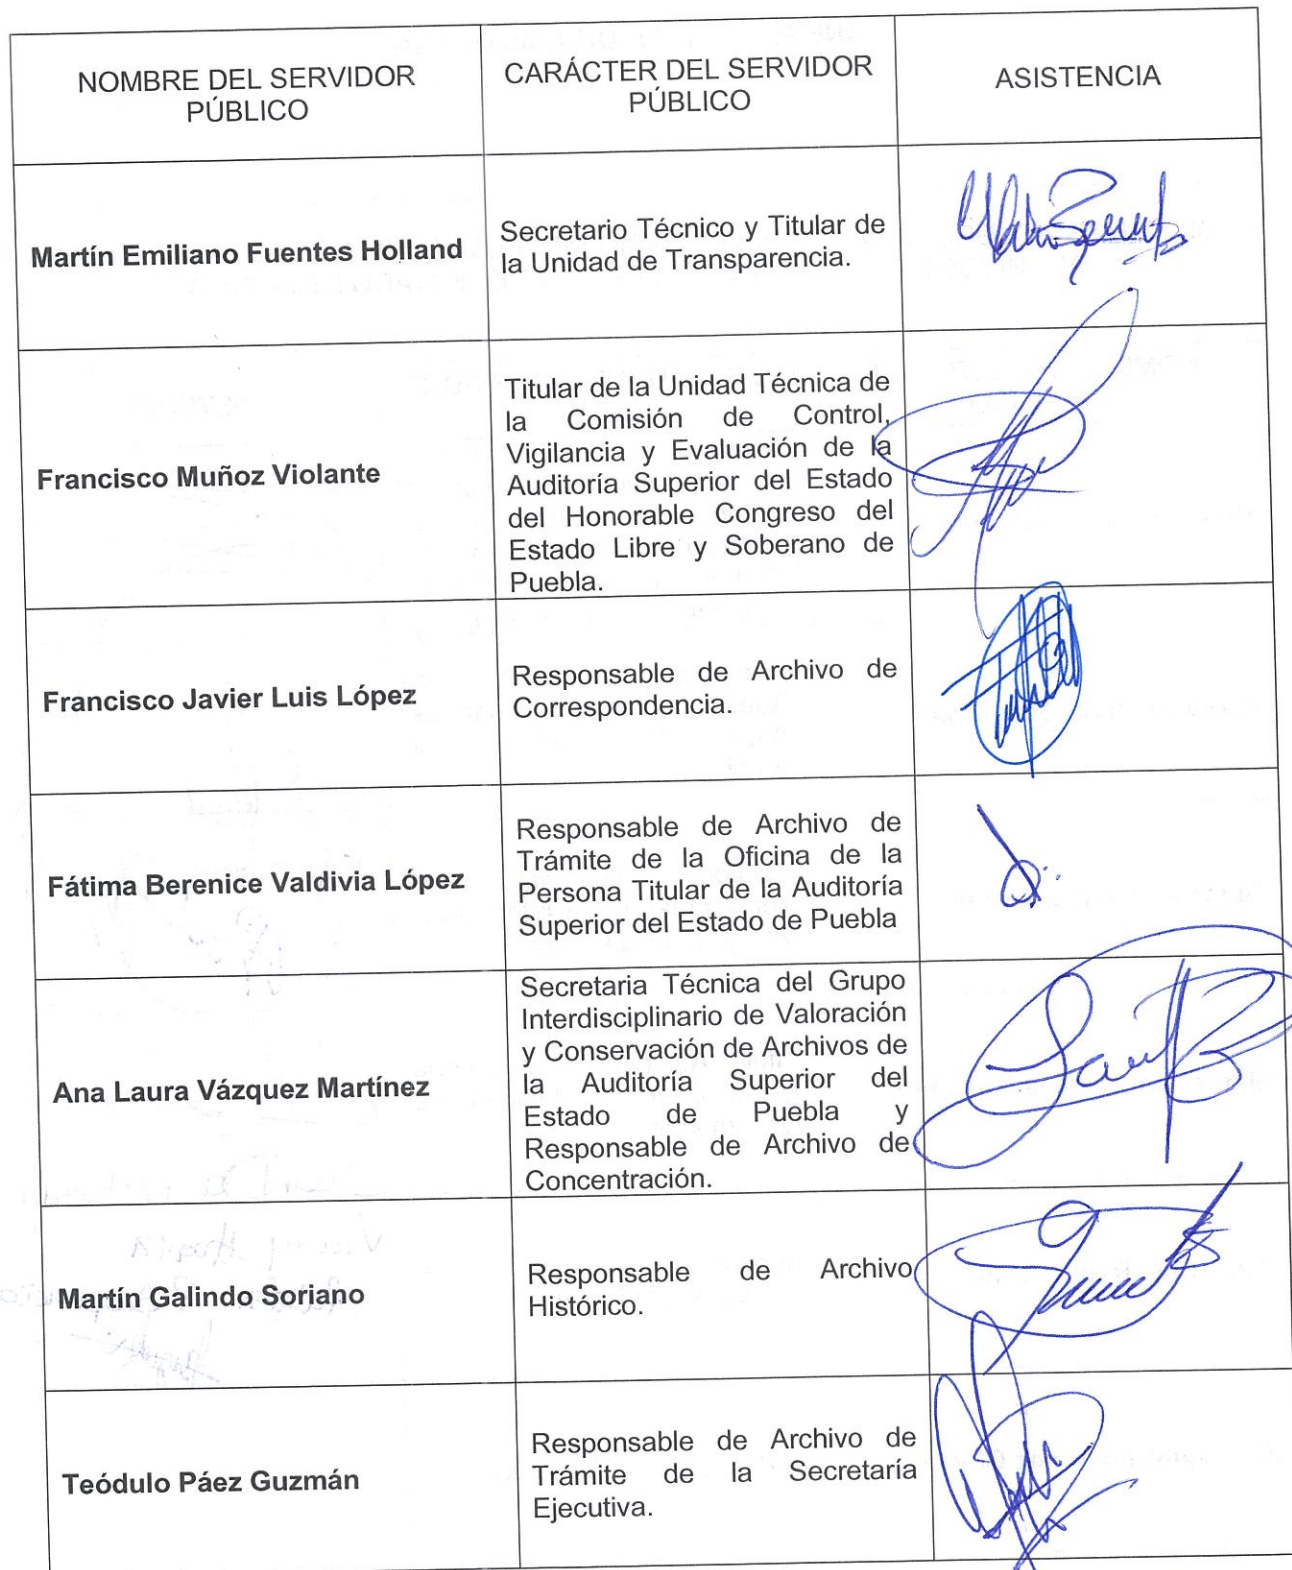 NOMBRE DEL SERVIDOR
PÚBLICO
CARÁCTER DEL SERVIDOR
PÚBLICO
ASISTENCIA
Martín Emiliano Fuentes Holland
Secretario Técnico y Titular de
la Unidad de Transparencia.
Francisco Muñoz Violante
Titular de la Unidad Técnica de
la Comisión de Control,
Vigilancia y Evaluación de la
Auditoría Superior del Estado
del Honorable Congreso del
Estado Libre y Soberano de
Puebla.
Francisco Javier Luis López
Responsable de Archivo de
Correspondencia.
Fátima Berenice Valdivia López
Responsable de Archivo de
Trámite de la Oficina de la
Persona Titular de la Auditoría
Superior del Estado de Puebla
Ana Laura Vázquez Martínez
Secretaria Técnica del Grupo
Interdisciplinario de Valoración
y Conservación de Archivos de
la Auditoría Superior del
Estado de Puebla y
Responsable de Archivo de
Concentración.
Martín Galindo Soriano
Responsable de Archivo
Histórico.
Teódulo Páez Guzmán
Responsable de Archivo de
Trámite de la Secretaría
Ejecutiva.